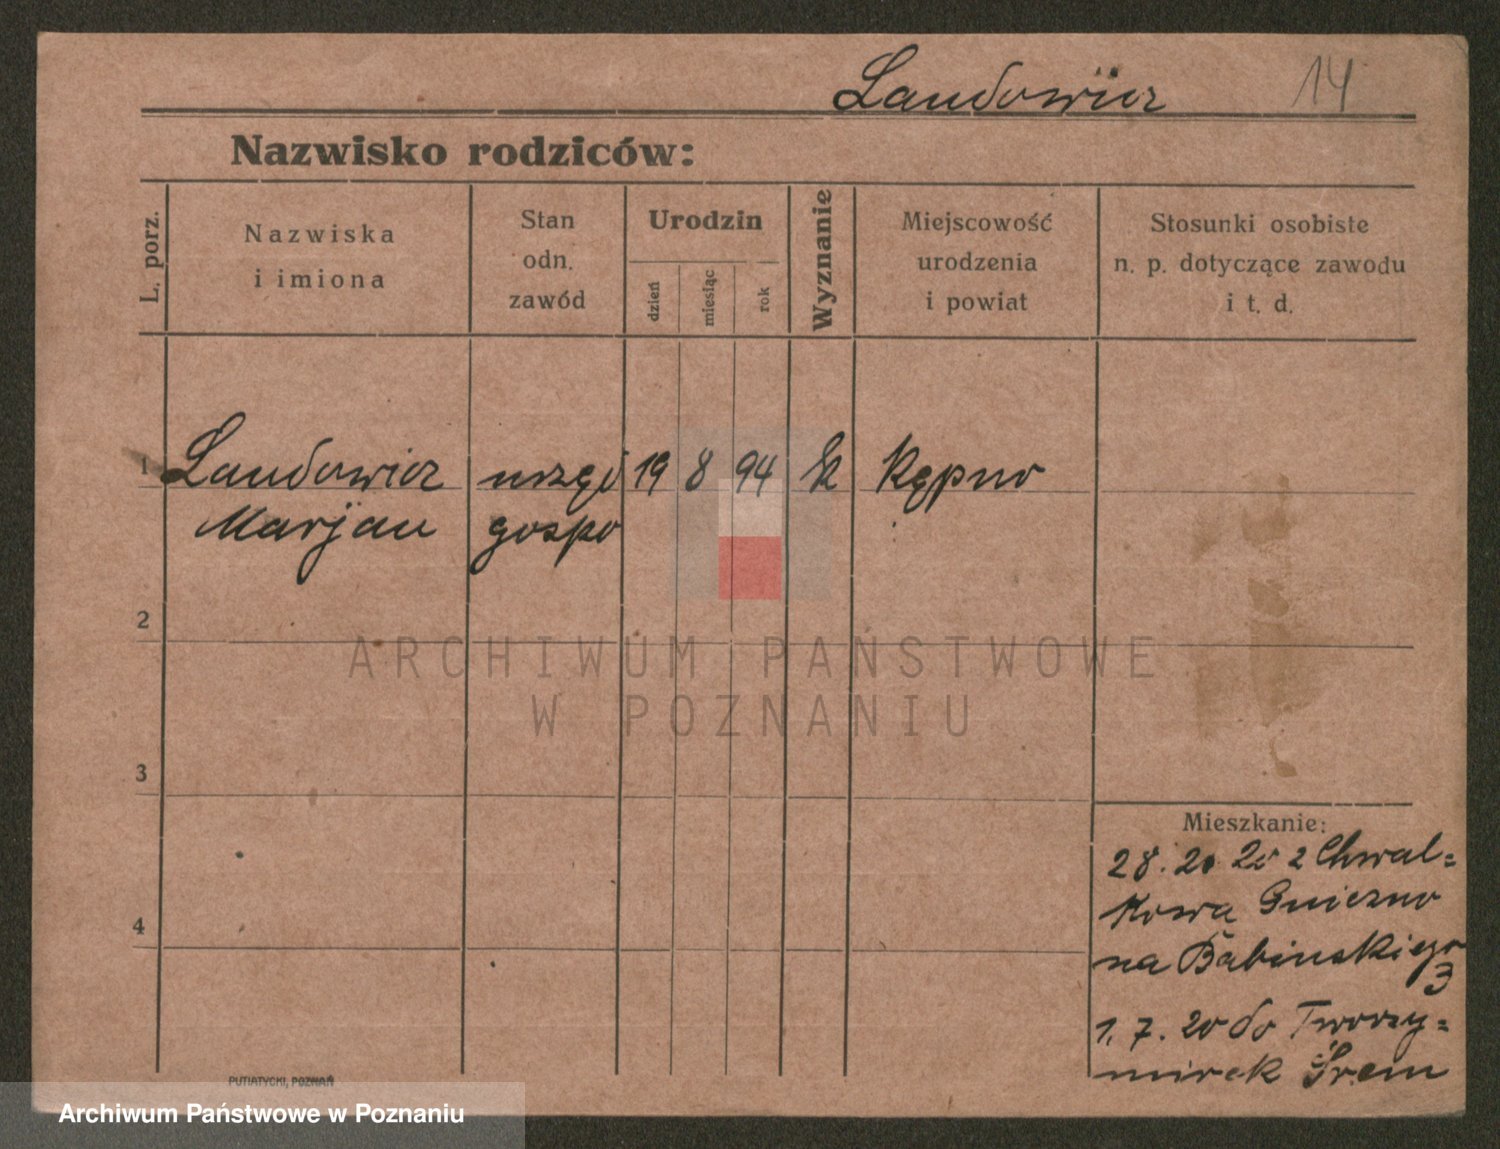 Landowicz 14
Nazwisko rodziców:
L. porz.
Nazwiska
i imiona
Stan
odn.
zawód
Urodzin
dzień
miesiąc
rok
Wyznanie
Miejscowość
urodzenia
i powiat
Stosunki osobiste
n. p. dotyczące zawodu
i t. d.
1 Landowicz urzęd 19 8 94 k Kępno
Marjan gospo
2
ARCHIWUM PAŃSTWOWE
W POZNANIU
3
Mieszkanie:
28. 2. 20 z Chwal=
kowa Gniezno
na Babinskiego
3
4
1. 7. 20 do Tworzy=
mirek Śrem
PUTIATYCKI, POZNAŃ
Archiwum Państwowe w Poznaniu